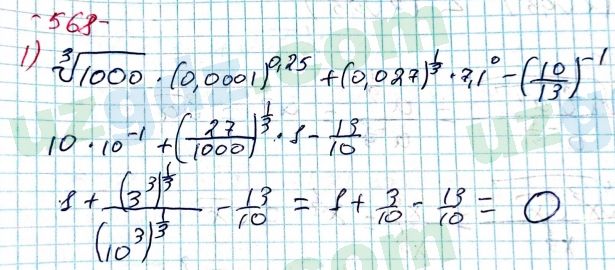 -568-
1) ∛1000 · (0,0001)^0,25 + (0,027)^1/3 · 7,1^0 - (10/13)^-1
10 · 10^-1 + (27/1000)^1/3 · 1 - 13/10
1 + (3^3)^1/3 / (10^3)^1/3 - 13/10 = 1 + 3/10 - 13/10 = 0